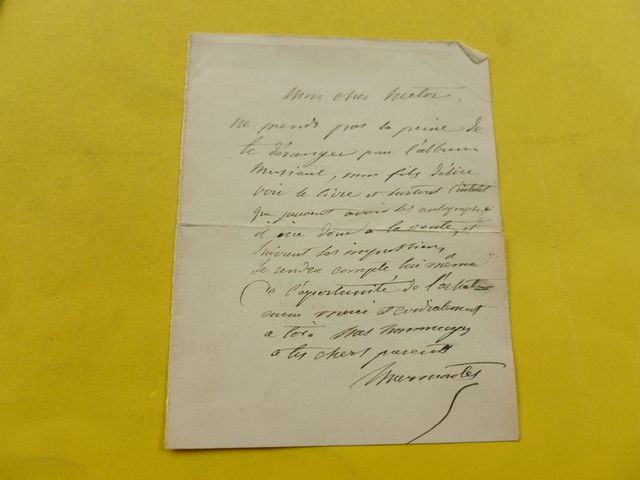 Mon cher Hector,
ne prends pas la peine de
te déranger pour l'album
musical, mon fils désire
voir le livre et surtout l'intérêt
que peuvent avoir les autographes
et ira donc à la vente, et
suivant ses impressions
se rendra compte lui même
de l'opportunité de l'achat
encore merci et cordialement
à toi. Mes hommages
à tes chers parents
Marmontel